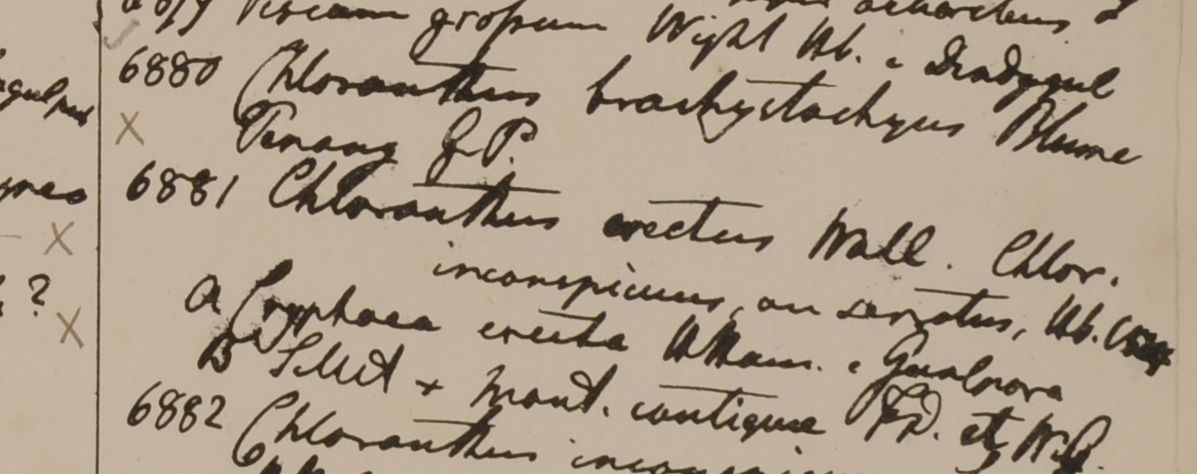 Piscum grossum Wight Hb. e Dindygul
6880 Chloranthus brachystachyus Blume
Penang G.P.
6881 Chloranthus erectus Wall. Chlor.
inconspicuus, an serratus, Hb.
a Cryphaea erecta Hb Ham. e Gualpara
B Sillet & Mont. contiguae F.D. et W.G.
6882 Chloranthus
?